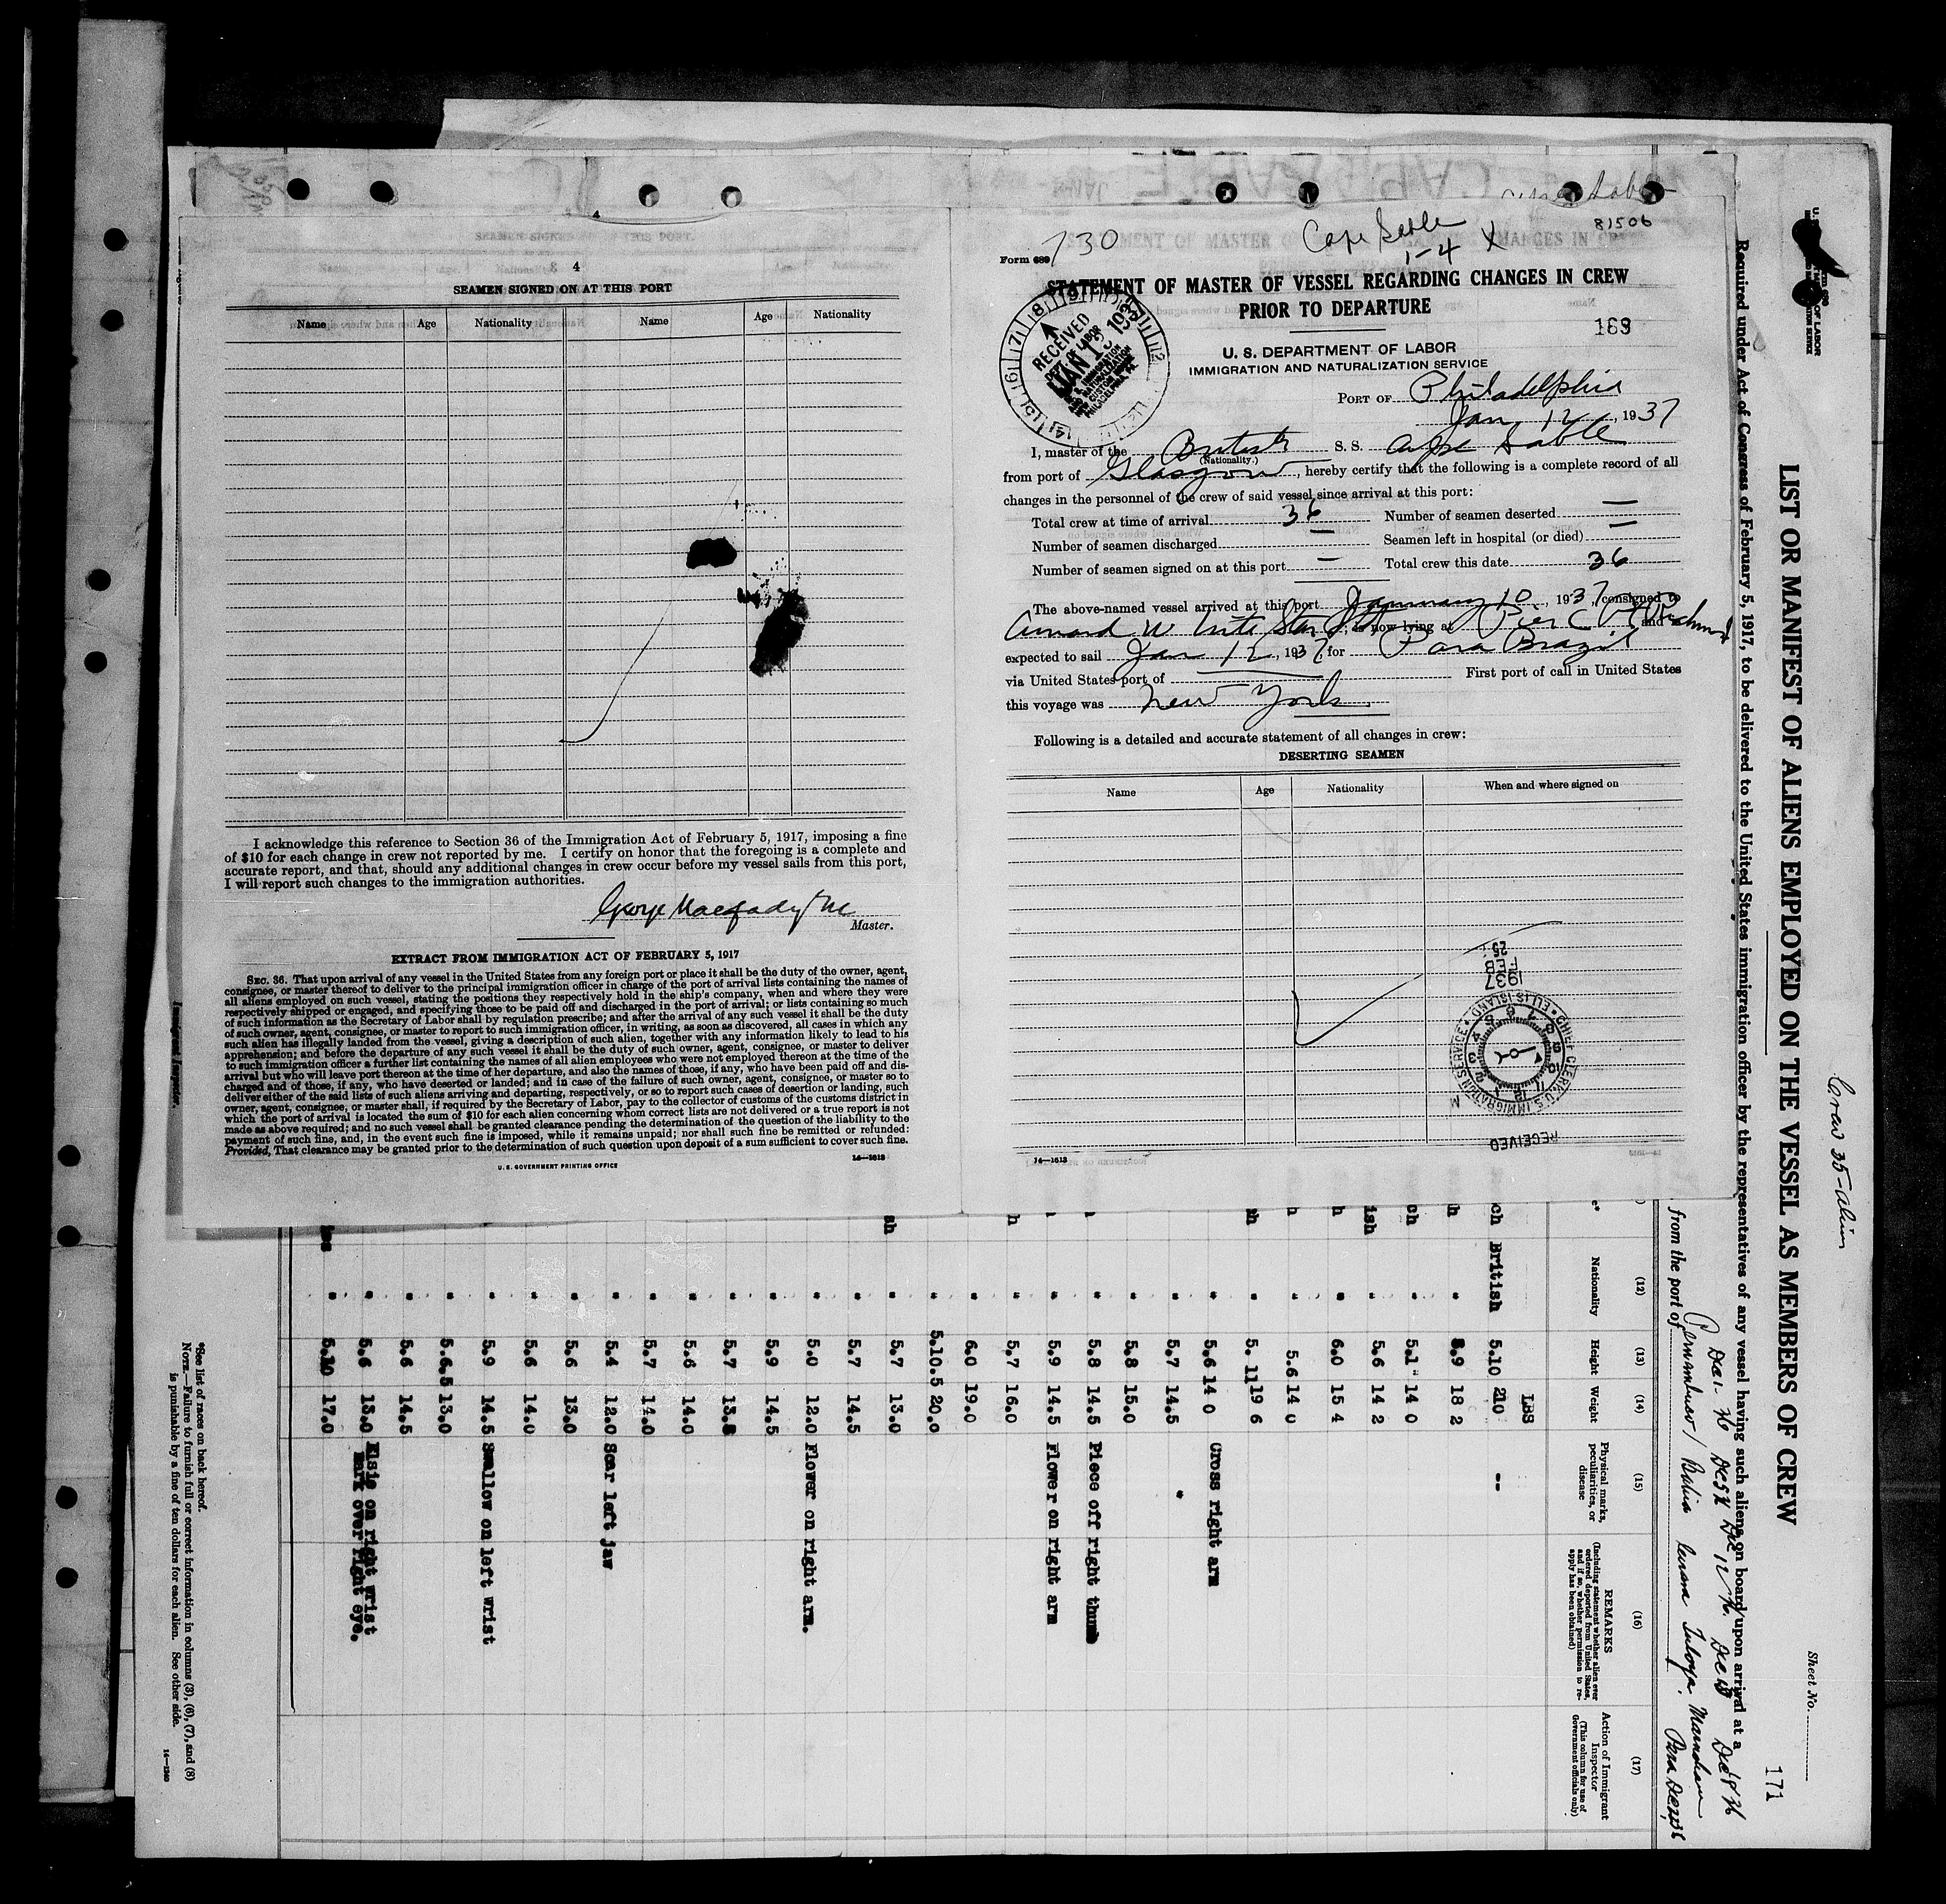 8 4
SEAMEN SIGNED ON AT THIS PORT
Name Age Nationality Name Age Nationality
I acknowledge this reference to Section 36 of the Immigration Act of February 5, 1917, imposing a fine
of $10 for each change in crew not reported by me. I certify on honor that the foregoing is a complete and
accurate report, and that, should any additional changes in crew occur before my vessel sails from this port,
I will report such changes to the immigration authorities.
George Macfadyen
Master.
EXTRACT FROM IMMIGRATION ACT OF FEBRUARY 5, 1917
SEC. 36. That upon arrival of any vessel in the United States from any foreign port or place it shall be the duty of the owner, agent,
consignee, or master thereof to deliver to the principal immigration officer in charge of the port of arrival lists containing the names of
all aliens employed on such vessel, stating the positions they respectively hold in the ship's company, when and where they were
respectively shipped or engaged, and specifying those to be paid off and discharged in the port of arrival; or lists containing so much
of such information as the Secretary of Labor shall by regulation prescribe; and after the arrival of any such vessel it shall be the duty
of such owner, agent, consignee, or master to report to such immigration officer, in writing, as soon as discovered, all cases in which any
such alien has illegally landed from the vessel, giving a description of such alien, together with any information likely to lead to his
apprehension; and before the departure of any such vessel it shall be the duty of such owner, agent, consignee, or master to deliver
to such immigration officer a further list containing the names of all alien employees who were not employed thereon at the time of the
arrival but who will leave port thereon at the time of her departure, and also the names of those, if any, who have been paid off and dis-
charged and of those, if any, who have deserted or landed; and in case of the failure of such owner, agent, consignee, or master so to
deliver either of the said lists of such aliens arriving and departing, respectively, or so to report such cases of desertion or landing, such
owner, agent, consignee, or master shall, if required by the Secretary of Labor, pay to the collector of customs of the customs district in
which the port of arrival is located the sum of $10 for each alien concerning whom correct lists are not delivered or a true report is not
made as above required; and no such vessel shall be granted clearance pending the determination of the question of the liability to the
payment of such fine, and, in the event such fine is imposed, while it remains unpaid; nor shall such fine be remitted or refunded:
Provided, That clearance may be granted prior to the determination of such question upon deposit of a sum sufficient to cover such fine.
U. S. GOVERNMENT PRINTING OFFICE 14—1613
730 Cape Sable 81506
1-4 X
Form 689
STATEMENT OF MASTER OF VESSEL REGARDING CHANGES IN CREW
PRIOR TO DEPARTURE
169
U. S. DEPARTMENT OF LABOR
IMMIGRATION AND NATURALIZATION SERVICE
RECEIVED
DEPT. OF LABOR
JAN 13 1937
PORT OF Philadelphia
Jan 12, 1937
I, master of the British S. S. Cape Sable
(Nationality.)
from port of Glasgow, hereby certify that the following is a complete record of all
changes in the personnel of the crew of said vessel since arrival at this port:
Total crew at time of arrival 36 Number of seamen deserted —
Number of seamen discharged — Seamen left in hospital (or died) —
Number of seamen signed on at this port — Total crew this date 36
The above-named vessel arrived at this port January 10, 1937, consigned to
Cunard White Star Ltd, is now lying at Pier C Pt Richmond and
expected to sail Jan 12, 1937 for Para Brazil
via United States port of — First port of call in United States
this voyage was New York
Following is a detailed and accurate statement of all changes in crew:
DESERTING SEAMEN
Name Age Nationality When and where signed on
FEB 25 1937
CHIEF CLERK U.S. IMMIGRATION SERVICE ELLIS ISLAND
RECEIVED
14—1613
Crew 35-aliens
Sheet No.
171
LIST OR MANIFEST OF ALIENS EMPLOYED ON THE VESSEL AS MEMBERS OF CREW
Required under Act of Congress of February 5, 1917, to be delivered to the United States immigration officer by the representatives of any vessel having such aliens on board upon arrival at a
from the port of Pernambuco / Bahia
(12) (13) (14) (15) (16) (17)
Nationality Height Weight Physical marks, peculiarities, or disease
REMARKS
(Including statement whether alien ever ordered deported from United States, and if so, whether permission to re-apply has been obtained)
Action of Immigrant Inspector
(This column for use of Government officials only)
LBS
British 5.10 210 --
" 5.9 18 2
" 5.1" 14 0
" 5.6 14 2
" 6.0 15 4
" 5.6 14 0
" 5.11 19 6
" 5.6 14 0 Cross right arm
" 5.7 14.5 "
" 5.8 15.0
" 5.8 14.5 Piece off right thumb
" 5.9 14.5 Flower on right arm
" 5.7 16.0
" 6.0 19.0
" 5.10.5 20.0
" 5.7 13.0
" 5.7 14.5
" 5.0 12.0 Flower on right arm.
" 5.9 14.5
" 5.7 13.8
" 5.6 14.0
" 5.7 14.0
" 5.4 12.0 Scar left jaw
" 5.6 13.0
" 5.6 14.0
" 5.9 14.5 Swallow on left wrist
" 5.6.5 13.0
" 5.6 14.5
" 5.6 13.0 Elsie on right wrist
Mark over right eye.
" 5.10 17.0
*See list of races on back hereof.
NOTE.—Failure to furnish full or correct information in columns (3), (6), (7), and (8)
is punishable by a fine of ten dollars for each alien. See other side.
14—1240
Immigrant Inspector.